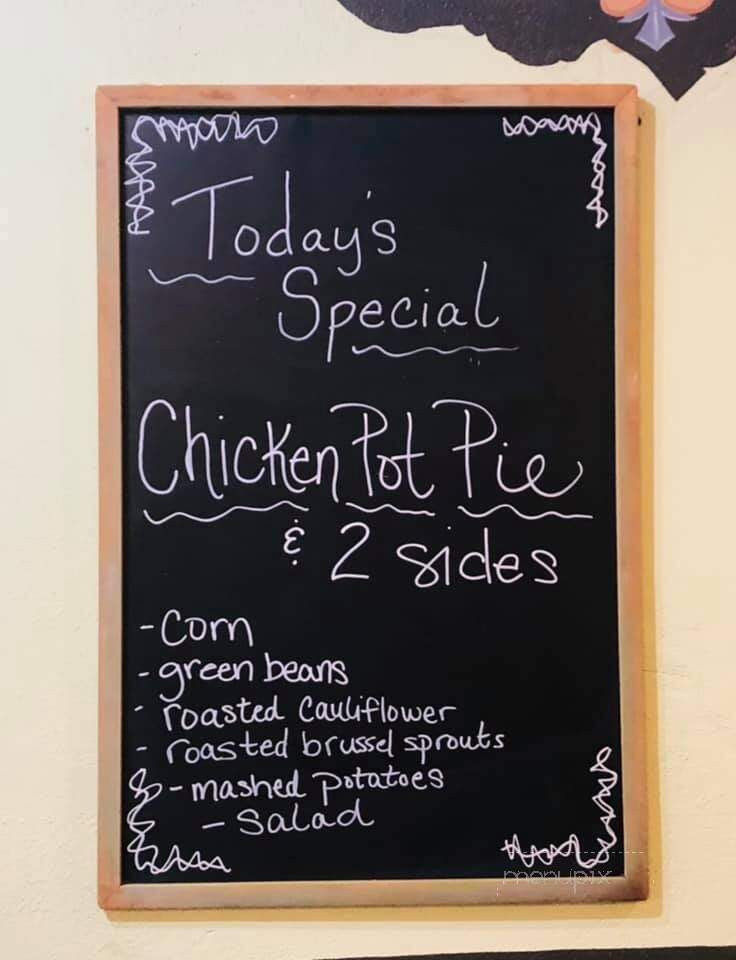 Today's
Special
Chicken Pot Pie
& 2 sides
- corn
- green beans
- roasted cauliflower
- roasted brussel sprouts
- mashed potatoes
- Salad
menupix